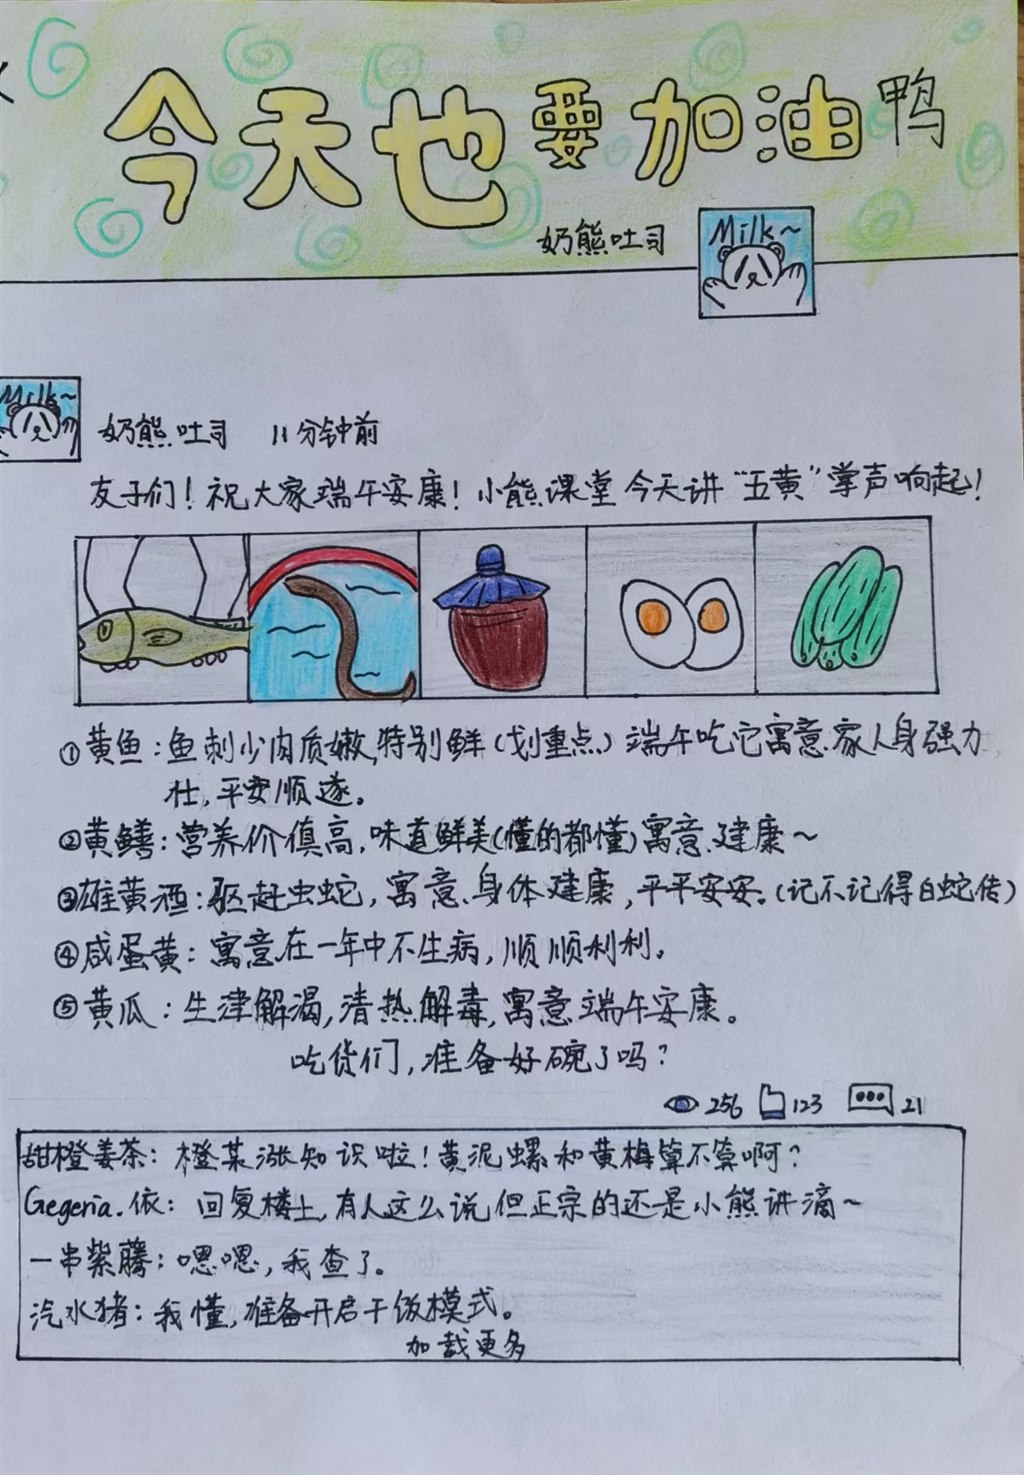 今天也要加油鸭
奶熊吐司
Milk~
Milk~
奶熊吐司 11分钟前
友子们！祝大家端午安康！小熊课堂今天讲“五黄”掌声响起！
①黄鱼：鱼刺少肉质嫩，特别鲜（划重点）端午吃它寓意家人身强力
壮，平安顺遂。
②黄鳝：营养价值高，味道鲜美（懂的都懂）寓意建康~
③雄黄酒：驱赶虫蛇，寓意身体建康，平平安安。（记不记得白蛇传）
④咸蛋黄：寓意在一年中不生病，顺顺利利。
⑤黄瓜：生津解渴，清热解毒，寓意端午安康。
吃货们，准备好碗了吗？
256 123 21
甜橙姜茶：橙某涨知识啦！黄泥螺和黄梅算不算啊？
Gegeria.依：回复楼上，有人这么说但正宗的还是小熊讲滴~
一串紫藤：嗯嗯，我查了。
汽水猪：我懂，准备开启干饭模式。
加载更多